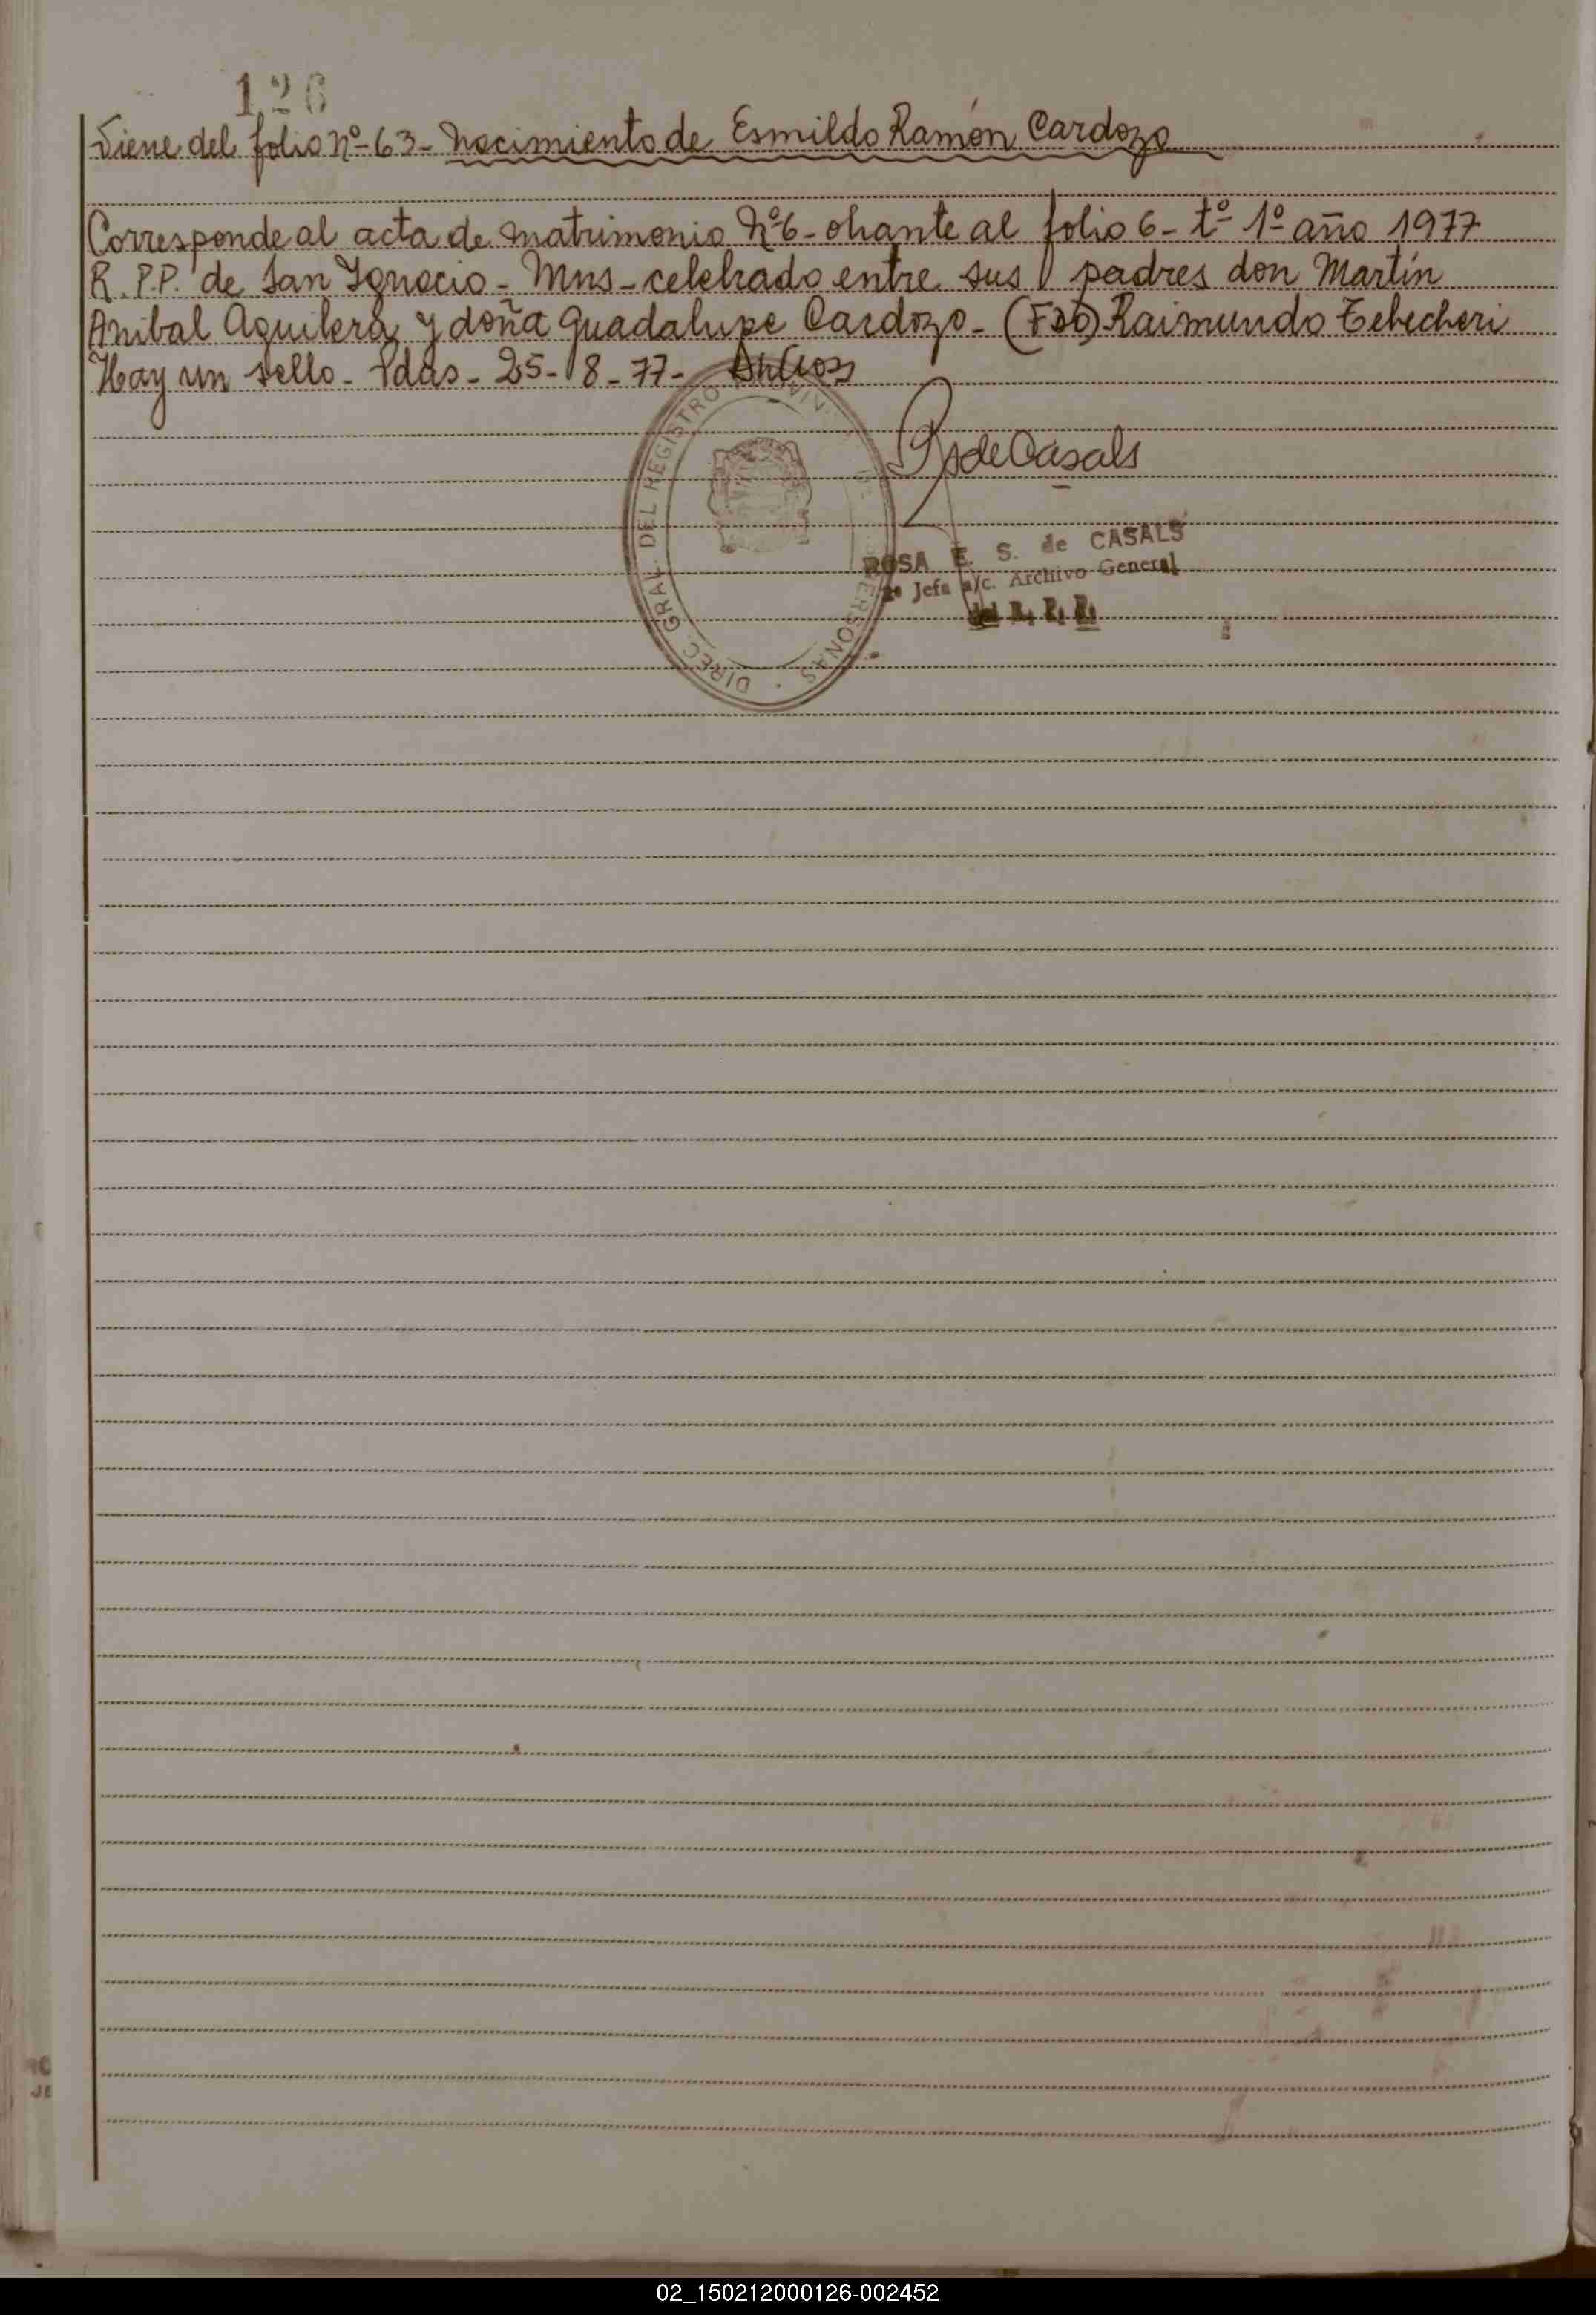 126
Viene del folio Nº 63- Nacimiento de Esmildo Ramón Cardozo
Corresponde al acta de matrimonio Nº 6- obrante al folio 6- tº 1º año 1977
R.P.P. de San Ignacio- Mns- celebrado entre sus padres don Martín
Anibal Aguilera y doña Guadalupe Cardozo- (Fdo) Raimundo Tebecheri
Hay un sello- Pdas- 25- 8- 77-
DIREC. GRAL. DEL REGISTRO PERSONAS
de Casals
ROSA E. S. de CASALS
Jefa a/c. Archivo General
del R. P. P.
02_150212000126-002452